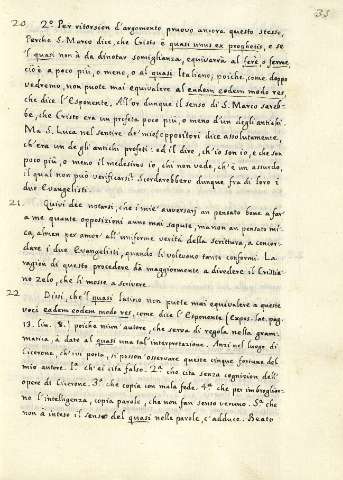 35
20. 2º Per ritorsion d'argomento pruovo ancora questo stesso,
Perche S. Marco dice, che Cristo è quasi unus ex prophetis, e se
il quasi non à da dinotar somiglianza, equivarrà al ferè o ferme,
cioè a poco più, o meno, o al quasi Italiano; poiche, come doppo
vedremo, non puote mai equivalere al eadem eodem modo res,
che dice l'Esponente. All'or dunque il senso di S. Marco sareb-
be, che Cristo era un profeta poco più, o meno d'un degli antichi.
Ma S. Luca nel sentire de' miei oppositori dice assolutamente,
ch'era un de gli antichi profeti: ed il dire, ch'io son io, e che son
poco più, o meno il medesimo io, chi non vede, ch'è un assurdo,
il qual non può verificarsi? Scorderebbero dunque fra di loro i
due Evangelisti.
21. Quivi dee notarsi, che i miei avversarj an pensato bene a far
a me quante opposizioni anno mai sapute, ma non an pensato mi-
ca, almen per amor all'uniforme verità della scrittura, a concor-
dare i due Evangelisti, quando li volevano tanto conformi. La
ragion di questo procedere dà maggiormente a divedere il Cristia-
no zelo, che li mosse a scrivere.
22. Dissi, che l'quasi latino non puote mai equivalere a queste
voci eadem eodem modo res, come dice l'Esponente (Expos. lat. pag.
13. lin. 8.) poiche niun' autore, che serva di regola nella gram-
matica, à dato al quasi una tal'interpretazione. Anzi nel luogo di
Cicerone, ch'ivi porta, si posson osservare queste cinque fortune del
mio autore. 1ª ch'ei cita falso. 2ª che cita senza cognizion dell'
opere di Cicerone. 3ª che copia con mala fede. 4ª che per imbrogliar-
no l'intelligenza, copia parole, che non fan senso veruno. 5ª che
non à inteso il senso del quasi nelle parole, c'adduce. Beato